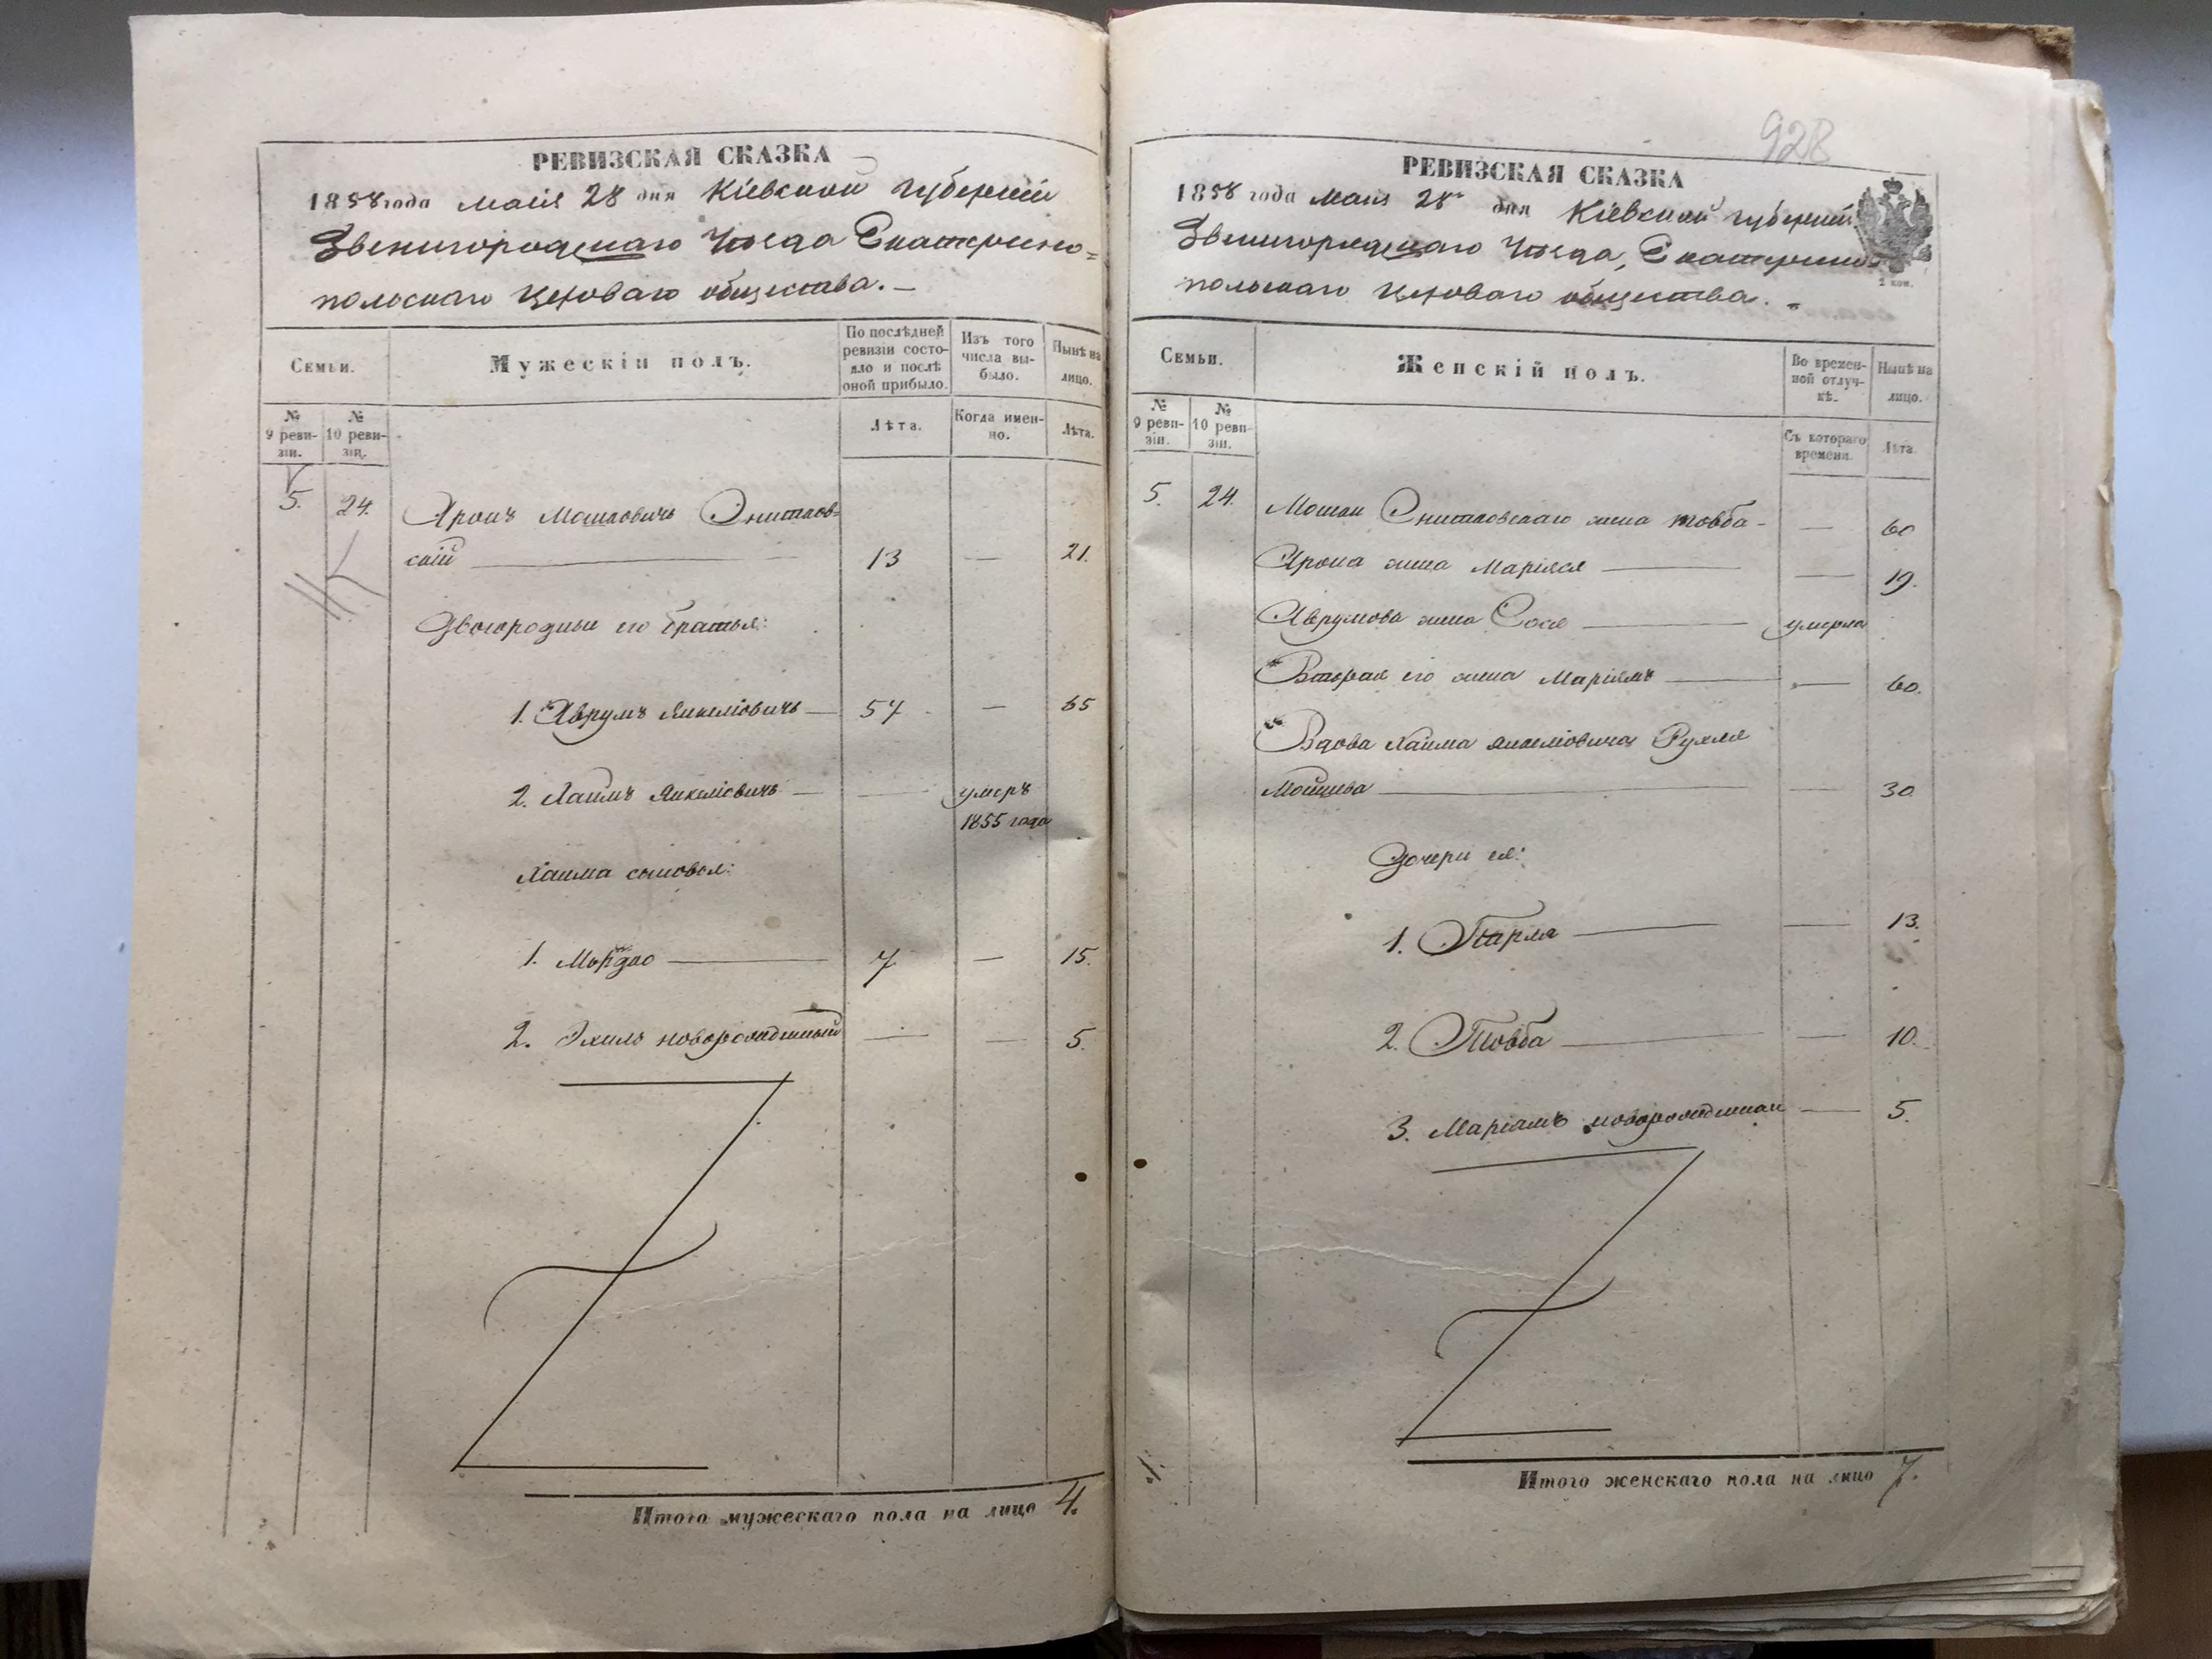 РЕВИЗСКАЯ СКАЗКА
1858 года Маія 28 дня Кіевской губерніи
Звенигородскаго Уѣзда Екатерино=
польскаго Цеховаго общества. —
Семьи.
Мужескій полъ.
По послѣдней ревизіи состояло и послѣ оной прибыло.
Изъ того числа выбыло.
Нынѣ на лицо.
№ 9 ревизіи.
№ 10 ревизіи.
Лѣта.
Когда именно.
Лѣта.
5. 24. Аронъ Мошковичъ
скій — 13 — 21.
Двоюродные его братья:
1. Аврумъ Янкеліовичъ — 57 — 65
2. Хаимъ Янкеліовичъ — — умеръ
1855 года
Хаима сыновья:
1. Мордко — 7 — 15.
2. новорожденный — — 5.
Итого мужескаго пола на лицо 4.
928
РЕВИЗСКАЯ СКАЗКА
1858 года Маія 28 дня Кіевской губерніи
Звенигородскаго Уѣзда, Екатерино
польскаго Цеховаго общества. =
2 коп.
Семьи.
Женскій полъ.
Во временной отлучкѣ.
Нынѣ на лицо.
№ 9 ревизіи.
№ 10 ревизіи.
Съ котораго времени.
Лѣта.
5. 24. Мошки жена Товба — — 60
Арона жена Маріяся — — 19.
Аврумова жена Сося — умерла
Вторая его жена Маріямъ — — 60.
Вдова Хаима Янкеліовича Рухля
— — 30.
Дочери ея:
1. — — 13.
2. Товба — — 10.
3. Маріамъ новорожденная — 5.
Итого женскаго пола на лицо 7.